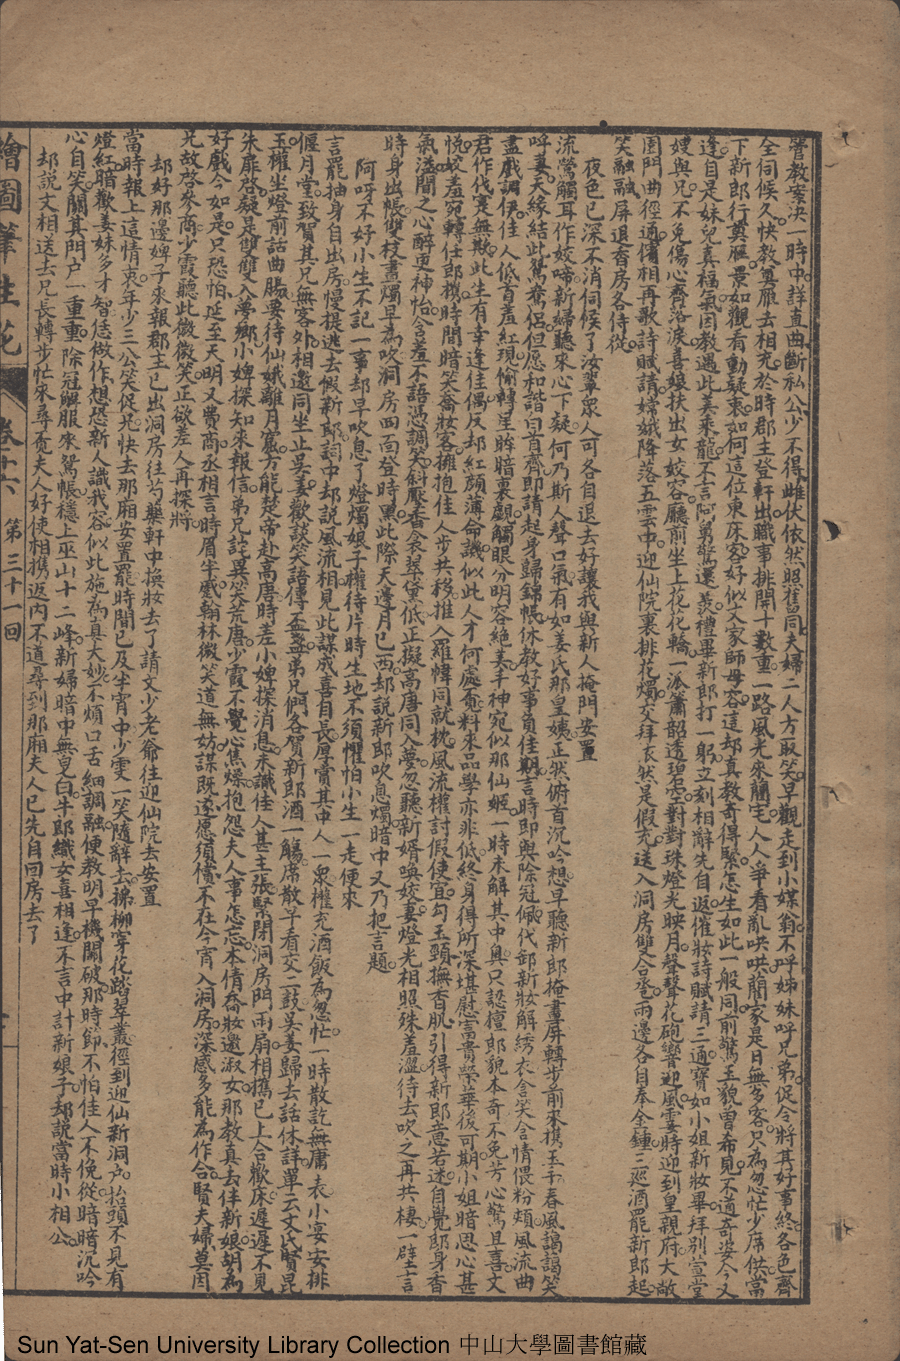 管教案決一時中詳直曲斷私公少不得雌伏依然照舊同夫婦二人方取笑早觀走到小媒翁不呼姊妹呼兄弟促令將其好事終各色齊
全伺候久快教奠雁去相充於時郡主登軒出職事排開十數重一路風光來蘭宅人人爭看亂哄哄蘭家是日無多客只為怱忙少席供當
下新郎行奠雁景如觀有動疑衷如何這位東床客好似文家師母容這却真教奇得緊怎生如此一般同前驚玉貌曾希見不道奇姿今又
逢自是妹兒真福氣因教遇此美乘龍不言阿舅驚還羨禮畢新郎打一躬立刻相辭先自返催妝詩賦請三通寶如小姐新妝畢拜別萱堂
嫂與兄不免傷心齊落淚喜娘扶出女姣容廳前坐上花花轎一派簫韶透碧空對對珠燈光映月聲聲花砲響迎風霎時迎到皇親府大敞
園門曲徑通儐相再歌詩賦請嫦娥降落五雲中迎仙院裏排花燭交拜依然是假充送入洞房雙合卺兩邊各自奉金鍾三巡酒罷新郎起
笑融融屏退香房各侍從
夜色已深不消伺候了汝輩眾人可各自退去好讓我與新人掩門安置
流鶯觸耳作姣啼新婦聽來心下疑何乃斯人聲口氣有如姜氏那皇姨正然俯首沉吟想早聽新郎掩畫屏轉步前來携玉手春風謁謁笑
呼妻天緣結此鴛鴦侶但愿和諧白首齊即請起身歸錦帳休教好事負佳期言時即與除冠佩代卸新妝解綉衣含笑含情偎粉頰風流曲
盡戲調伊佳人低首羞紅現偷轉星眸暗裏覷觸眼分明容絕美丰神宛似那仙姬一時未解其中奧只認檀郎貌本奇不免芳心驚且喜文
君作伐定無欺此生有幸逢佳偶反却紅顏薄命譏似此人才何處覔料來品學亦非低終身得所深堪慰富貴榮華後可期小姐暗思心甚
悅姣羞宛轉任郎携時間暗笑喬妝客擁抱佳人步共移推入羅幃同就枕風流權討假便宜勾玉頸撫香肌引得新郎意若迷自覺郎身香
氣溢聞之心醉更神怡含羞不語憑調笑斜壓香衾翠黛低正擬高唐同入夢忽聽新婿喚姣妻燈光相照殊羞澀待去吹之再共棲一壁言
時身出帳雙枝畫燭早為吹洞房四面登時黑此際天邊月已西却說新郎吹息燭暗中又乃把言題
阿呀不好小生不記一事却早吹息了燈燭娘子權待片時生地不須懼怕小生一走便來
言罷抽身自出房慢提逃去假新郎詞中却說風流相見此謀成喜自長厚賞其中人一衆權充酒飯為怱忙一時散訖無庸表小宴安排
偃月堂致賀其兄無客外相邀同坐止吳姜歡談笑語傳盃盞弟兄們各賀新郎酒一觴席散早看交二鼓吳姜歸去話休詳單云文氏賢昆
玉權坐燈前話曲腸要待仙娥離月窟方能楚帝赴高唐時差小婢探消息未識佳人甚主張緊閉洞房門兩扇相攜已上合歡床遲遲不見
朱扉啓疑是雙雙入夢鄉小婢探知來報信弟兄詫異笑荒唐少霞不覺心焦燥抱怨夫人事怎忘本倩喬妝邀淑女那教真去伴新娘胡為
好戲今如是只恐怕延至天明又費商丞相言時眉半蹙翰林微笑道無妨謀既遂愿須償不在今宵入洞房深感多能為作合賢夫婦莫因
兄故啓參商少霞聽此微微笑正欲差人再探將
却好那邊婢子來報郡主已出洞房往芍藥軒中換妝去了請文少老爺往迎仙院去安置
當時報上這情衷年少三公笑促兄快去那廂安置罷時間已及半宵中少雯一笑隨辭去拂柳穿花踏翠叢徑到迎仙新洞戶抬頭不見有
燈紅暗歡姜妹多才智恁做作想恐新人識我容似此施為真大妙不煩口舌細調融便教明早機關破那時節不怕佳人不俛從暗暗沉吟
心自笑關其門戶一重重除冠解服來鴛帳穩上巫山十二峰新婦暗中無皂白牛郎織女喜相逢不言中計新娘子却說當時小相公
却說文相送去兄長轉步忙來尋覓夫人好使相携返內不道尋到那廂夫人已先自回房去了
繪圖筆生花
卷十六
第三十一回
Sun Yat-Sen University Library Collection 中山大學圖書館藏